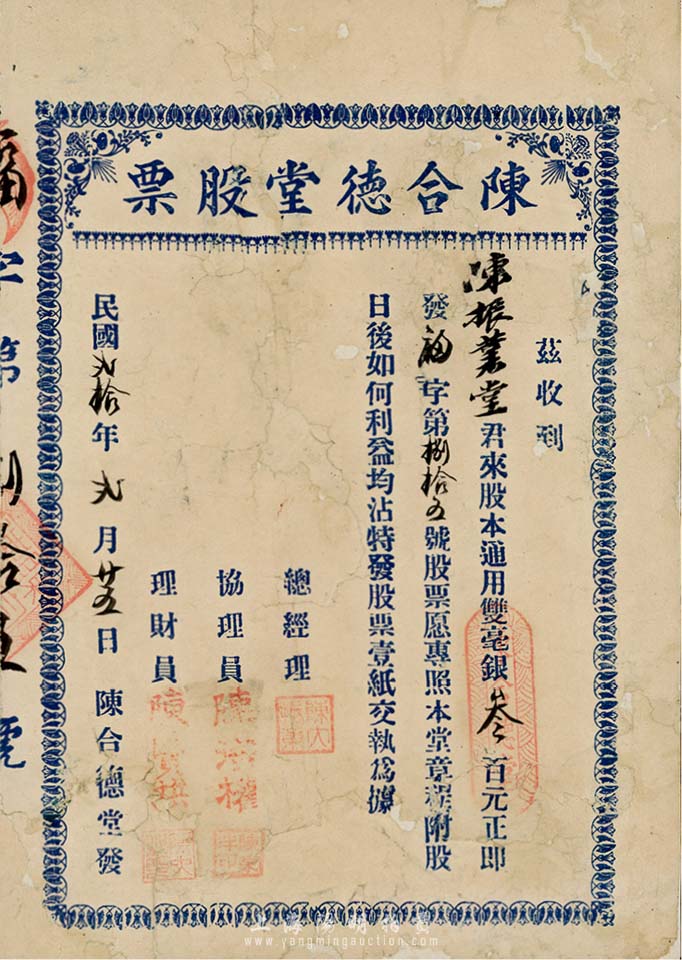 陳合德堂股票
茲收到
陳振業堂君來股本通用雙毫銀叁百元正即
發福字第捌拾五號股票愿專照本堂章程附股
日後如何利益均沾特發股票壹紙交執爲據
總經理
協理員 陳洪權
理財員
民國弍拾年弍月廿五日陳合德堂發
字第捌拾五號
上海陽明拍賣
www.yangmingauction.com